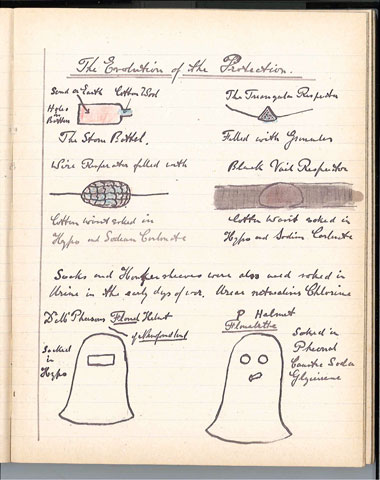 The Evolution of the Protection.
Sand or Earth Cotton Wool
Holes in Bottom
The Stom Bottel.
The Triangular Respirator
Filled with Granules
Wire Respirator filled with
Cotton soaked in
Hypo and Sodium Carbonate
Black Veil Respirator
Cotton soaked in
Hypo and Sodium Carbonate
Socks and were also used soked in
Urine in the early days of war. Ureas Chlorine
Helmet
of Newfoundland
Soaked
in
Hypo
P Helmet
Flanelette
Soked in
Phenol
Caustic Soda
Glycerine